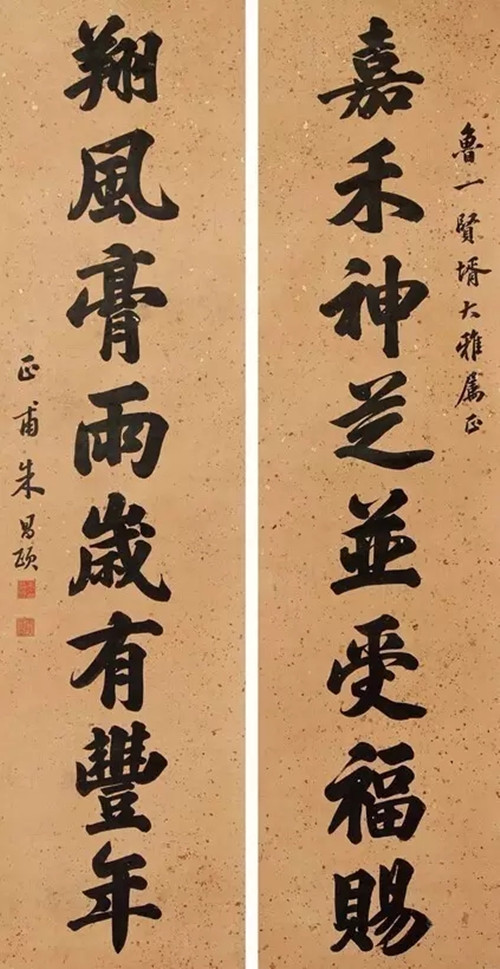 魯一賢壻大雅属正
嘉禾神芝並受福賜
翔風膏雨歲有豐年
正甫朱昌頤